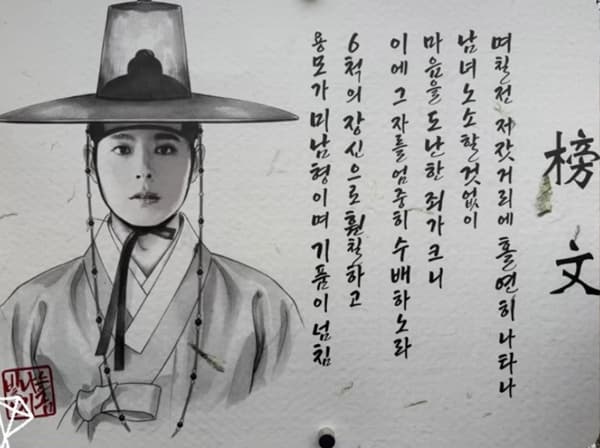 榜文
며칠전 저잣거리에 홀연히 나타나
남녀노소 할것없이
마음을 도난한 죄가 크니
이에 그 자를 엄중히 수배하노라
6척의 장신으로 훤칠하고
용모가 미남형이며 기품이 넘침